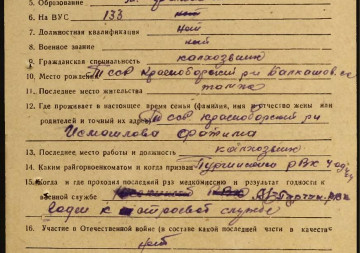 5. Образование
6. На ВУС 133 нет
7. Должностная квалификация нет
8. Военное звание нет
9. Гражданская специальность колхозник
10. Место рождения ТССР Красноборский р-н
11. Последнее место жительства
12. Где проживает в настоящее время семья (фамилия, имя и отчество жены или
родителей и точный их адрес) ТССР Красноборский р-н
Исмаилова
13. Последнее место работы и должность колхозник
14. Каким райгорвоенкоматом и когда призван РВК
15. Когда и где проходил последний раз медкомиссию и результат годности к
военной службе
годен к службе
16. Участие в Отечественной войне (в составе какой последней части в качестве
нет